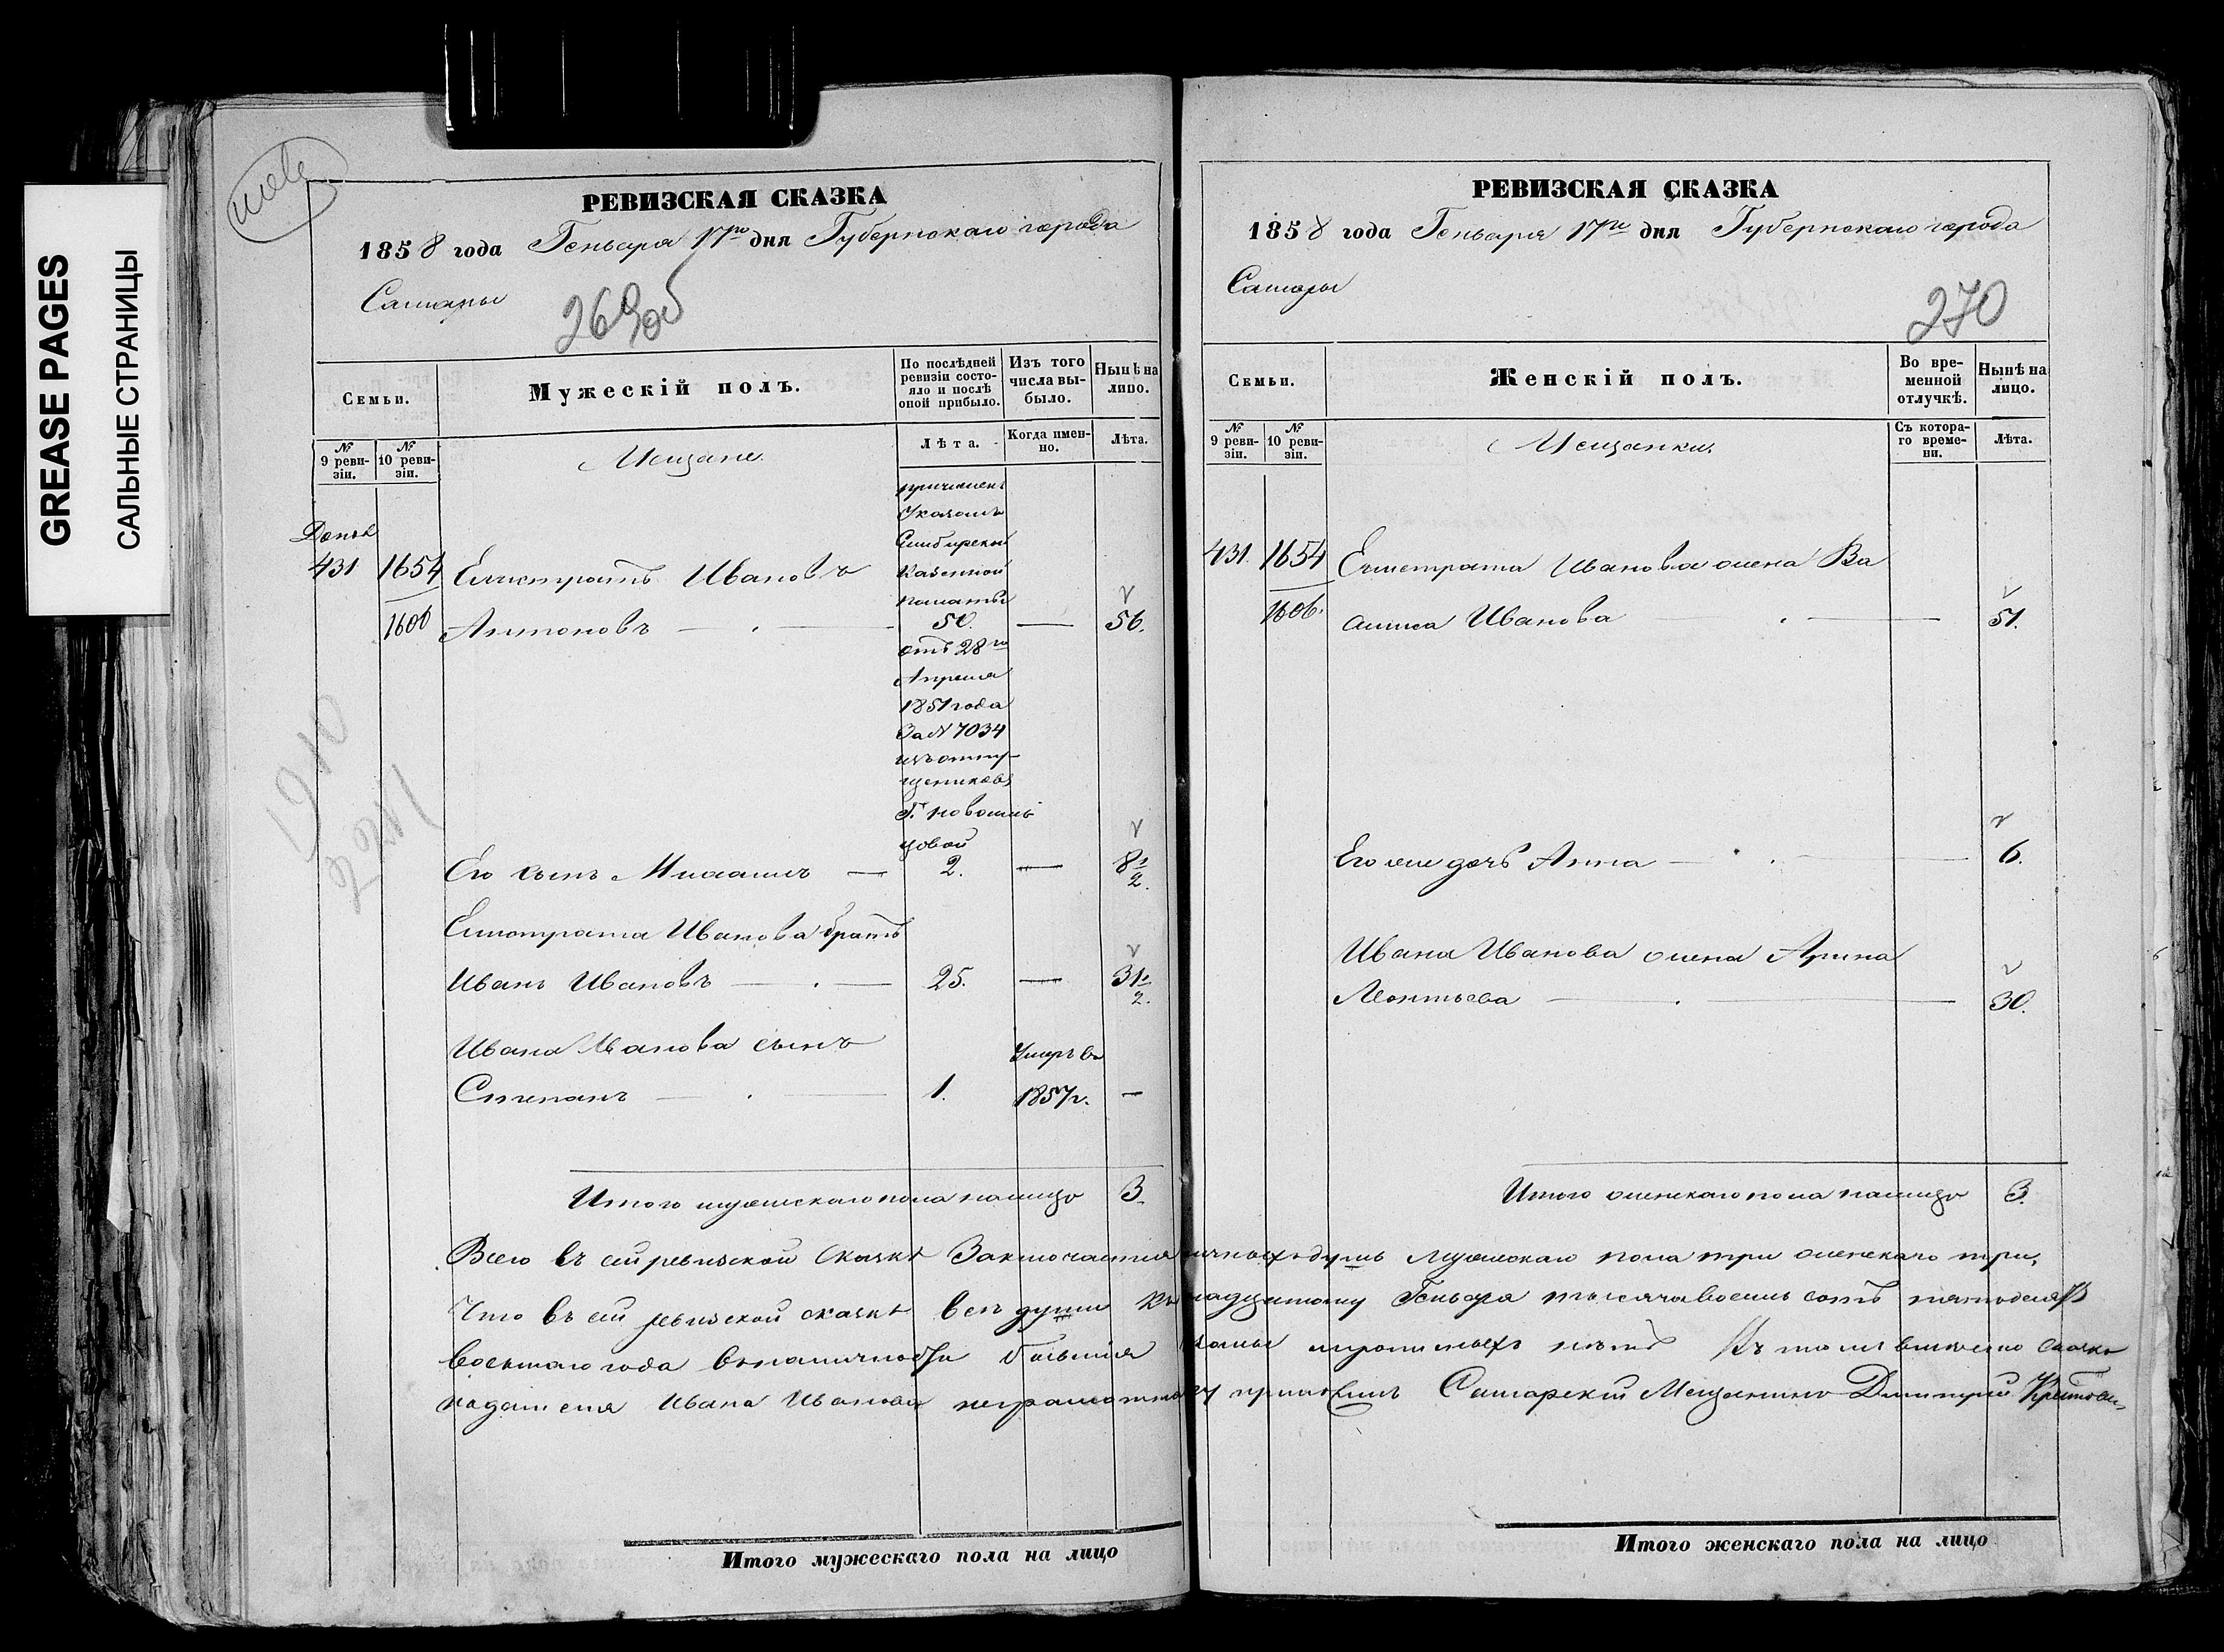 GREASE PAGES
САЛЬНЫЕ СТРАНИЦЫ
РЕВИЗСКАЯ СКАЗКА
1858 года Генваря 17го дня Губернскаго города
Самары
269об
Семьи.
Мужескій полъ.
По послѣдней ревизіи состояло и послѣ оной прибыло.
Изъ того числа выбыло.
Нынѣ на лицо.
№ 9 ревизіи.
№ 10 ревизіи.
Мещане.
Лѣта.
Когда именно.
Лѣта.
причислен
Указомъ
Симбирской
Казенной
палаты
Допол
431 1654 Елистратъ Ивановъ
1606 Антоновъ — 50. — 56.
отъ 28го
Апреля
1851 года
За № 7034
изъ отпу-
щениковъ
Г. Новосиль
цовой
Его сынъ Михаилъ — 2. — 8 1/2.
Елистрата Иванова братъ
Иванъ Ивановъ — 25. — 31 1/2.
Ивана Иванова сынъ Умеръ въ
Степанъ — 1. 1857г. —
Итого мужескаго пола налицо 3.
Итого мужескаго пола на лицо
РЕВИЗСКАЯ СКАЗКА
1858 года Генваря 17го дня Губернскаго города
Самары
270
Семьи.
Женскій полъ.
Во временной отлучкѣ.
Нынѣ на лицо.
№ 9 ревизіи.
№ 10 ревизіи.
Мещанки.
Съ котораго времени.
Лѣта.
431. 1654 Елистрата Иванова жена Ва
1606. силиса Иванова — 51.
Его же дочь Анна — 6.
Ивана Иванова жена Арина
Леонтьева — 30.
Итого женскаго пола налицо 3.
Всего въ сей ревизской сказкѣ Заключается личныхъ душъ мужескаго пола три женскаго три,
Что въ сей ревизской сказкѣ всѣ души къ надцатому Генваря тысяча восемь сотъ пятьдесятъ
восьмаго года въ наличности бывшія показаны и прописныхъ нѣтъ Къ
подателя Ивана Иванова неграмотнаго приложилъ Самарскій Мещанинъ Дмитрій
Итого женскаго пола на лицо